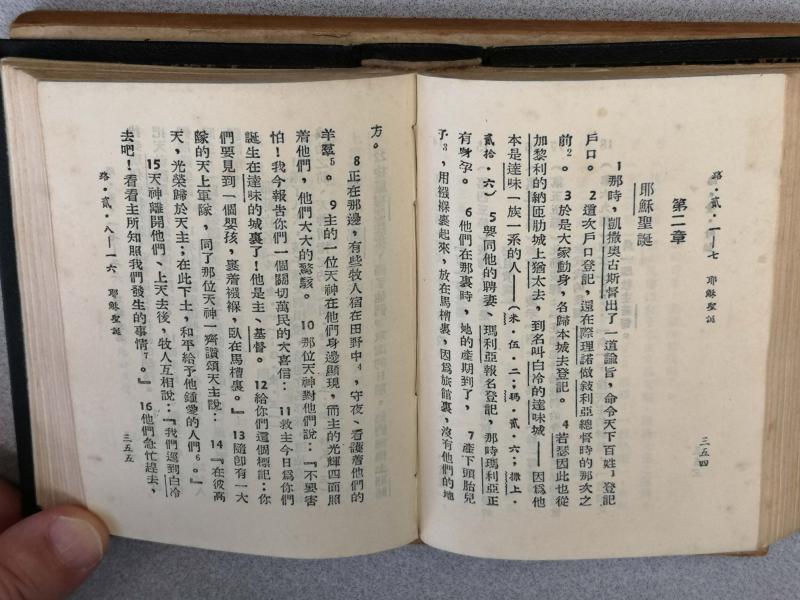 路·貳·1—七 耶穌聖誕
三五四
第二章
耶穌聖誕
1那時，凱撒奧古斯督出了一道諭旨，命令天下百姓，登記
戶口。 2這次戶口登記，還在際理諾做敍利亞總督時的那次之
前2。 3於是大家動身，各歸本城去登記。 4若瑟因此也從
加黎利的納匝肋城上猶太去，到名叫白冷的達味城——因爲他
本是達味一族一系的人——（米·伍·二；瑪·貳·六；撒上·
貳拾·六）5要同他的聘妻、瑪利亞報名登記，那時瑪利亞正
有身孕。 6他們在那裏時，她的產期到了， 7產下頭胎兒
子3，用襁褓裹起來，放在馬槽裏，因爲旅館裏，沒有他們的地
方。
8正在那邊，有些牧人宿在田野中4，守夜、看護着他們的
羊羣5。 9主的一位天神在他們身邊顯現，而主的光輝四面照
着他們，他們大大的驚駭。 10那位天神對他們說：『不要害
怕！我今報告你們一個關切萬民的大喜信： 11救主今日爲你們
誕生在達味的城裏了！他是主、基督。 12給你們這個標記：你
們要見到一個嬰孩，裹着襁褓，臥在馬槽裏。』 13隨卽有一大
隊的天上軍隊，同了那位天神一齊讚頌天主說： 14『在彼高
天，光榮歸於天主；在此下土，和平給予他鍾愛的人們6。』
15天神離開他們、上天去後，牧人互相說：『我們趕到白冷
去吧！看看主所知照我們發生的事情7。』 16他們急忙趕去，
路·貳·八—一六 耶穌聖誕
三五五